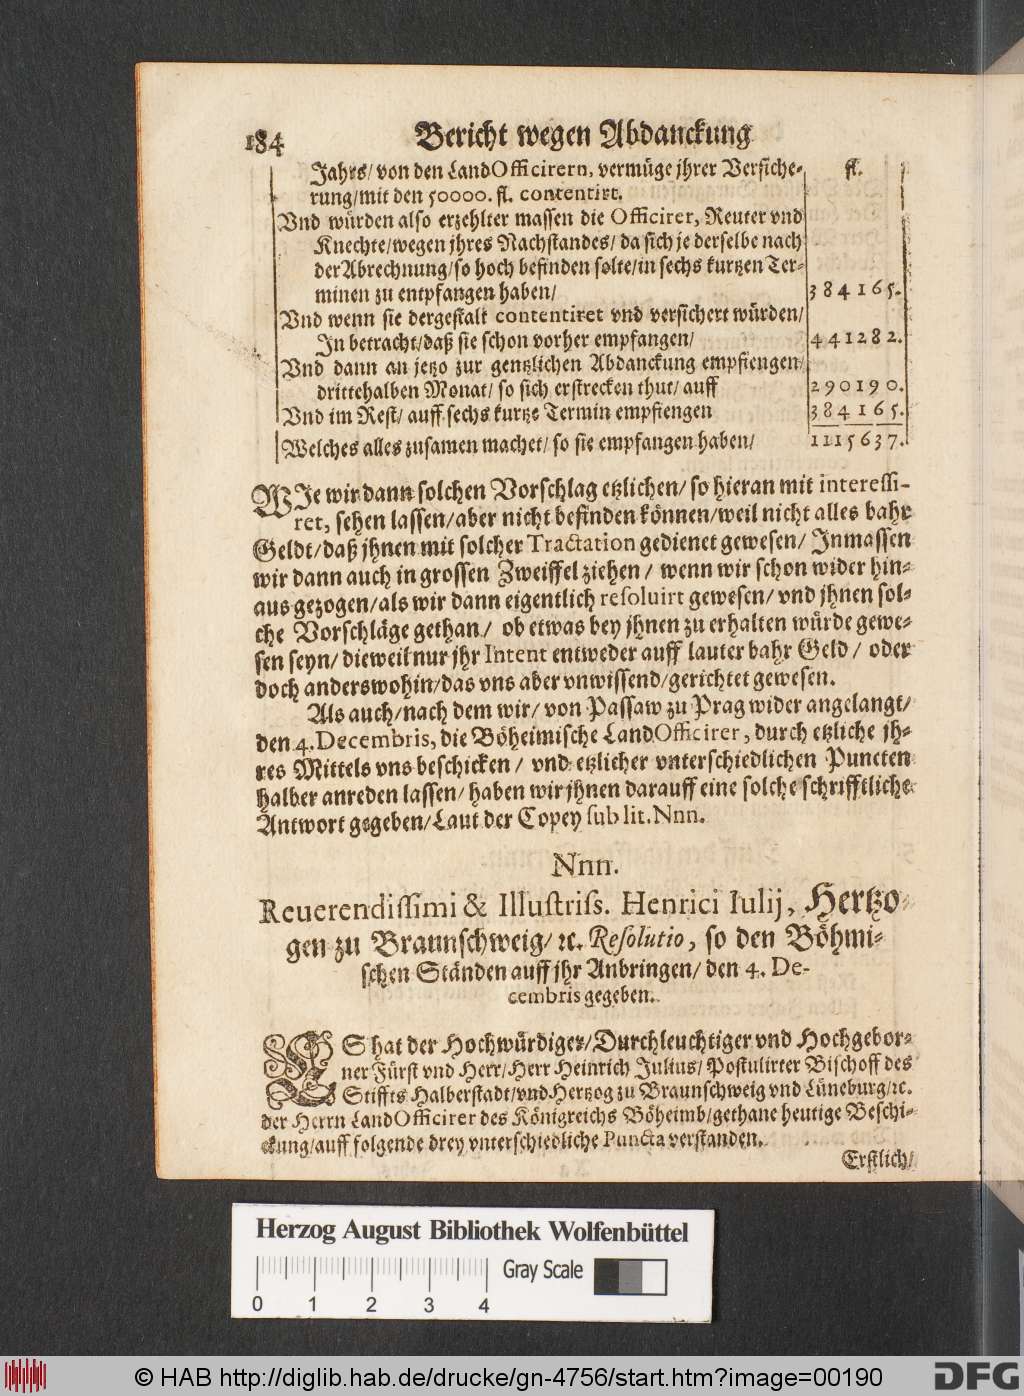 184 Bericht wegen Abdanckung
Jahrs/ von den LandOfficirern, vermüge jhrer Versiche- fl.
rung/mit den 50000. fl. contentirt.
Vnd würden also erzehlter massen die Officirer, Reuter vnd
Knechte/wegen jhres Nachstandes/ da sich je derselbe nach
der Abrechnung/so hoch befinden solte/in sechs kurtzen Ter-
minen zu entpfangen haben/ 384165.
Vnd wenn sie dergestalt contentiret vnd versichert würden/
In betracht/daß sie schon vorher empfangen/ 441282.
Vnd dann an jetzo zur gentzlichen Abdanckung empfiengen/
drittehalben Monat/ so sich erstrecken thut/ auff 290190.
Vnd im Rest/ auff sechs kurtze Termin empfiengen 384165.
Welches alles zusamen machet/ so sie empfangen haben/ 1115637.
WIe wir dann solchen Vorschlag etzlichen/ so hieran mit interessi-
ret, sehen lassen/aber nicht befinden können/weil nicht alles bahr
Geldt/daß jhnen mit solcher Tractation gedienet gewesen/ Inmassen
wir dann auch in grossen Zweiffel ziehen/ wenn wir schon wider hin-
aus gezogen/als wir dann eigentlich resoluirt gewesen/ vnd jhnen sol-
che Vorschläge gethan/ ob etwas bey jhnen zu erhalten würde gewe-
sen seyn/ dieweil nur jhr Intent entweder auff lauter bahr Geld/ oder
doch anderswohin/das vns aber vnwissend/gerichtet gewesen.
Als auch/nach dem wir/ von Passaw zu Prag wider angelangt/
den 4. Decembris, die Böheimische LandOfficirer, durch etzliche jh-
res Mittels vns beschicken/ vnd etzlicher vnterschiedlichen Puncten
halber anreden lassen/ haben wir jhnen darauff eine solche schrifftliche
Antwort gegeben/Laut der Copey sub lit. Nnn.
Nnn.
Reuerendissimi & Illustriss. Henrici Iulij, Hertzo-
gen zu Braunschweig/ ꝛc. Resolutio, so den Böhmi-
schen Ständen auff jhr Anbringen/ den 4. De-
cembris gegeben.
ES hat der Hochwürdiger/Durchleuchtiger vnd Hochgebor-
ner Fürst vnd Herr/Herr Heinrich Julius/ Postulirter Bischoff des
Stiffts Halberstadt/vnd Hertzog zu Braunschweig vnd Lüneburg/ꝛc.
der Herrn LandOfficirer des Königreichs Böheimb/gethane heutige Beschi-
ckung/auff folgende drey vnterschiedliche Puncta verstanden.
Erstlich/
Herzog August Bibliothek Wolfenbüttel
Gray Scale
0 1 2 3 4
© HAB http://diglib.hab.de/drucke/gn-4756/start.htm?image=00190
DFG